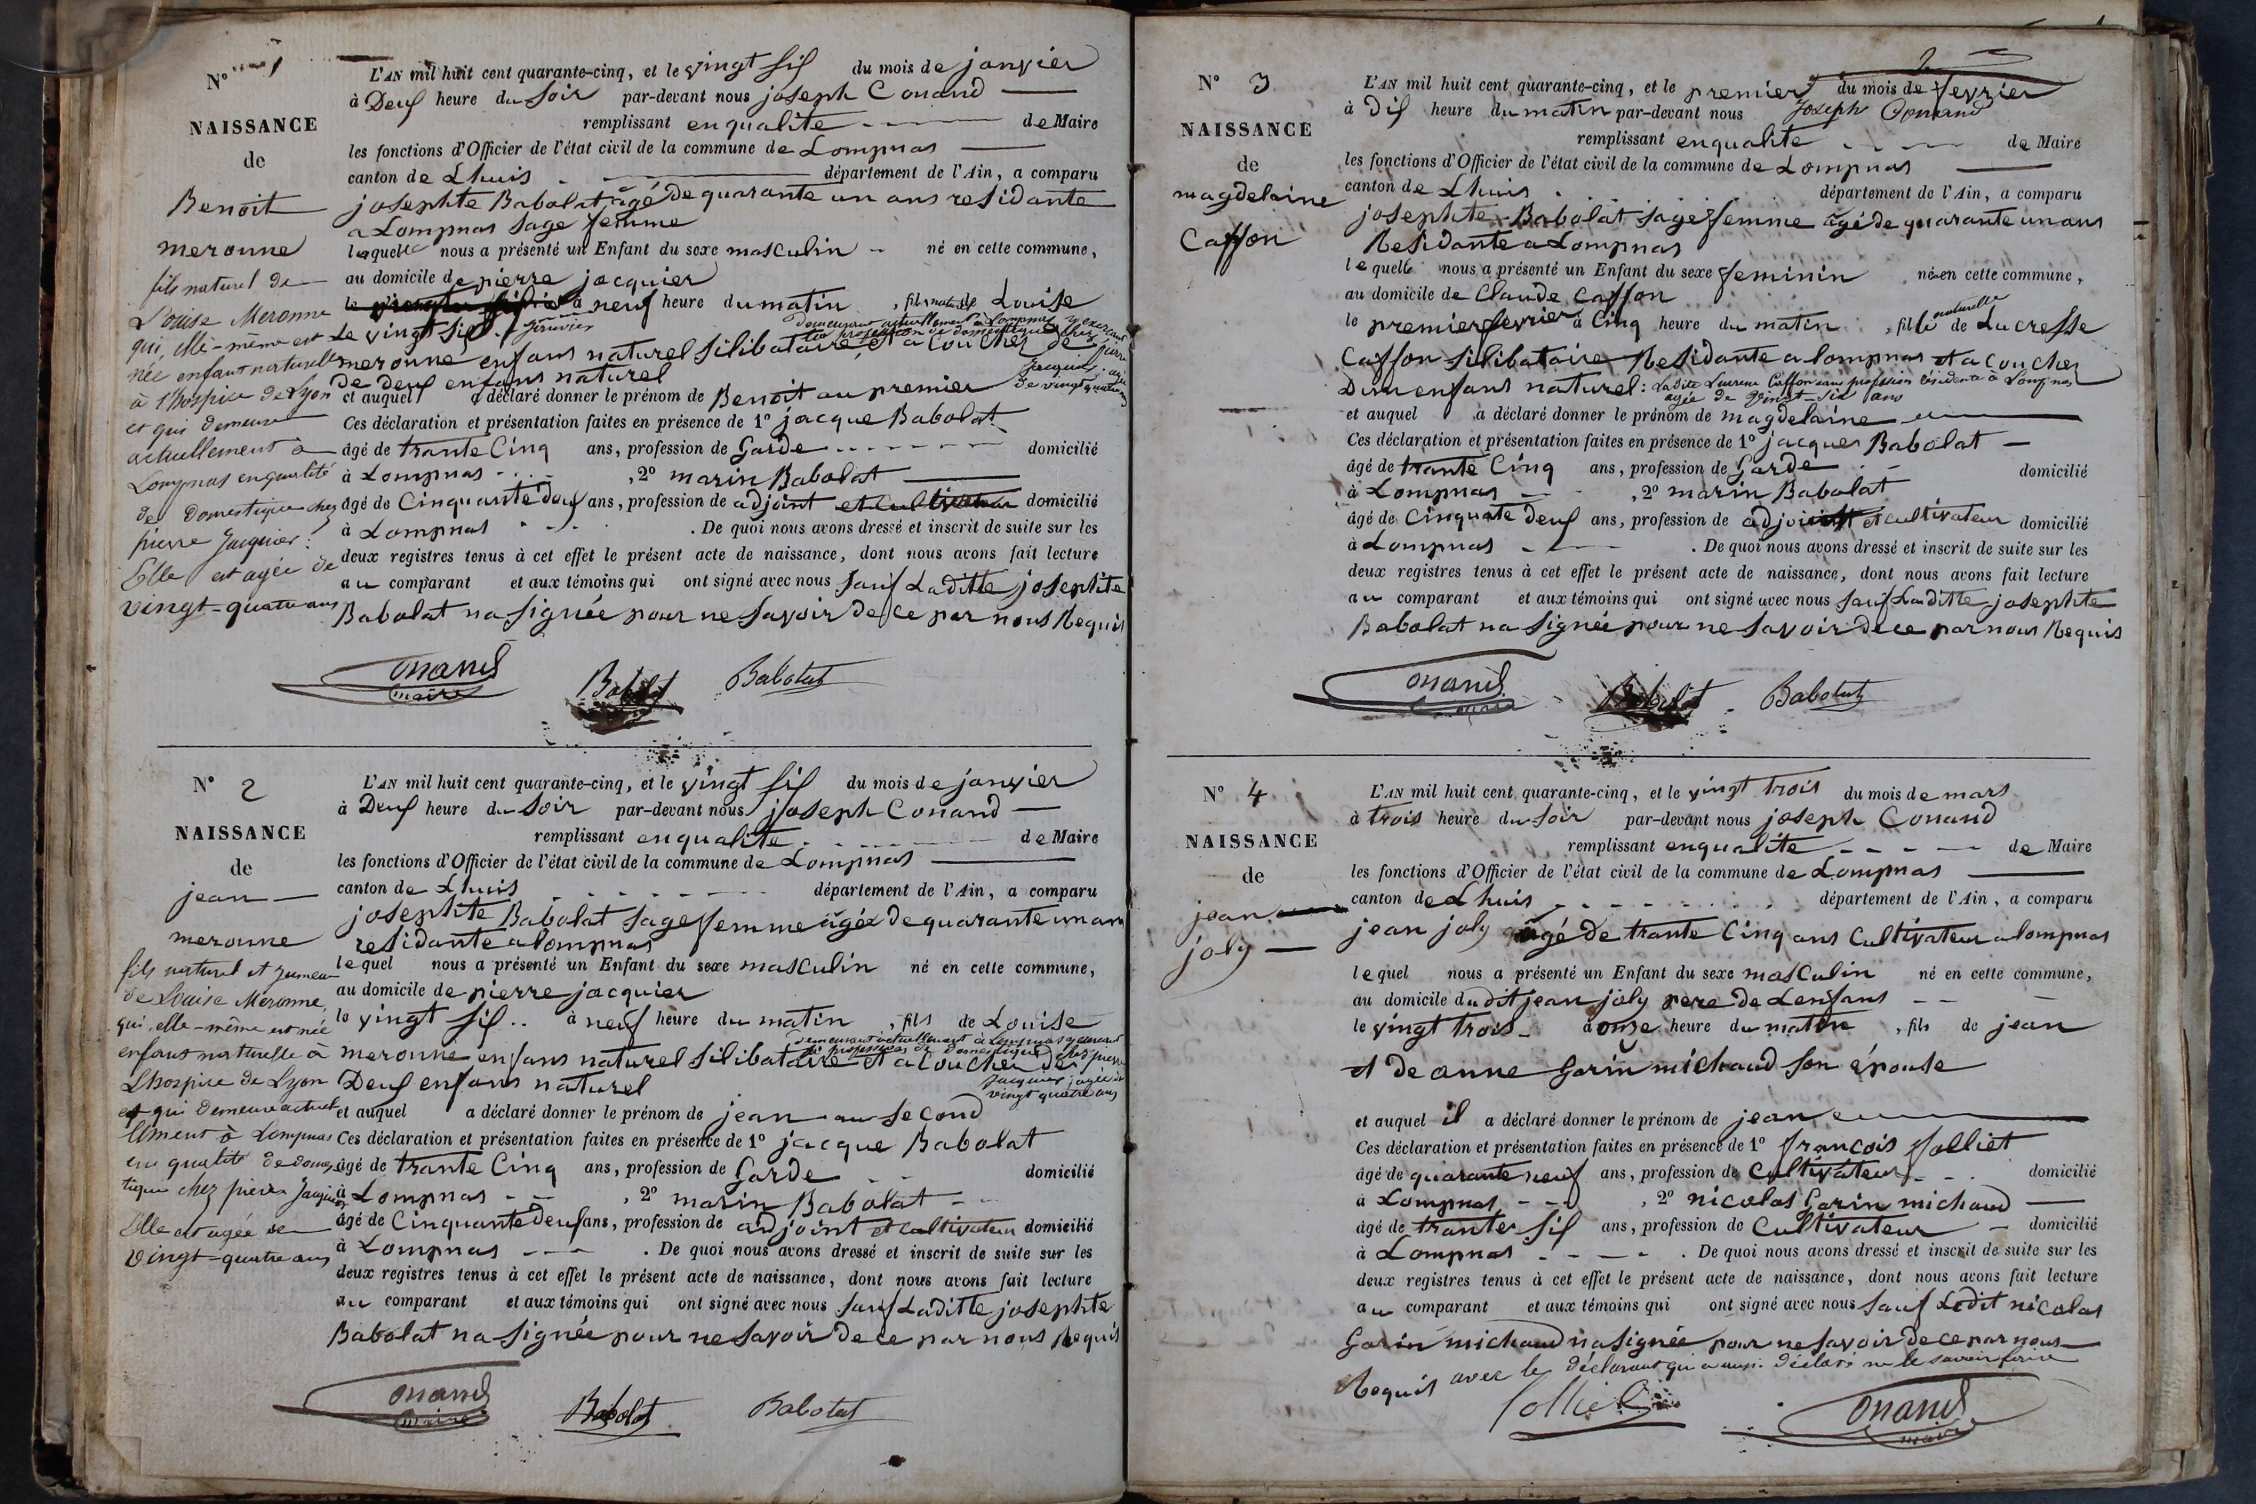 N° 1
NAISSANCE
de
Benoit
meronne
fils naturel de
Louise Meronne
qui, elle-même est
née enfant naturelle
à l'hospice de Lyon
et qui demeure
actuellement à
Lompnas en qualité
de domestique chez
pierre Jacquier.
Elle est agée de
vingt-quatre ans
L'AN mil huit cent quarante-cinq, et le vingt sif du mois de janvier
à Deuf heure du soir par-devant nous joseph Conand
remplissant en qualite de Maire
les fonctions d'Officier de l'état civil de la commune de Lompnas
canton de Lhuis département de l'Ain, a comparu
josephte Babolat agé de quarante un ans residante
a Lompnas sage femme
laquelle nous a présenté un Enfant du sexe masculin né en cette commune,
au domicile de pierre jacquier
le à neuf heure du matin, fils nat de Louise
Le vingt sif janvier
demeurant actuellement à Lompnas y exercant
la profession de domestique chez pierre
jacquier, agée
de vingt quatre ans
meronne enfans naturel silibataire et a coucher de
de deuf enfans naturel
et auquel a déclaré donner le prénom de Benoit au premier
Ces déclaration et présentation faites en présence de 1° jacque Babolat
âgé de trante Cinq ans, profession de Garde domicilié
à Lompnas, 2° marin Babolat
âgé de Cinquante deuf ans, profession de adjoint et cultivateur domicilié
à Lompnas. De quoi nous avons dressé et inscrit de suite sur les
deux registres tenus à cet effet le présent acte de naissance, dont nous avons fait lecture
au comparant et aux témoins qui ont signé avec nous sauf Laditte josephte
Babolat na signée pour ne savoir de ce par nous Requis
Conand
maire
Babolat
Babolat
N° 2
NAISSANCE
de
jean
meronne
fils naturel et jumeau
de Louise Meronne,
qui, elle-même est née
enfant naturelle à
L'hospice de Lyon
et qui demeure actuel
lement à Lompnas
en qualité de domes
tique chez pierre Jacquier
Elle est agée de
vingt-quatre ans
L'AN mil huit cent quarante-cinq, et le vingt sif du mois de janvier
à Deuf heure du soir par-devant nous joseph Conand
remplissant en qualite de Maire
les fonctions d'Officier de l'état civil de la commune de Lompnas
canton de Lhuis département de l'Ain, a comparu
josephte Babolat sage femme agée de quarante un ans
residante a lompnas
lequel nous a présenté un Enfant du sexe masculin né en cette commune,
au domicile de pierre jacquier
le vingt sif.. à neuf heure du matin, fils de Louise
demeurant actuellement à Lompnas y exercant
la profession de domestique chez pierre
Jacquier, agée de
vingt quatre ans
meronne enfans naturel silibataire et a coucher de
Deuf enfans naturel
et auquel a déclaré donner le prénom de jean au second
Ces déclaration et présentation faites en présence de 1° jacque Babolat
âgé de trante Cinq ans, profession de Garde domicilié
à Lompnas, 2° marin Babolat
âgé de Cinquante deuf ans, profession de adjoint et cultivateur domicilié
à Lompnas. De quoi nous avons dressé et inscrit de suite sur les
deux registres tenus à cet effet le présent acte de naissance, dont nous avons fait lecture
au comparant et aux témoins qui ont signé avec nous sauf Laditte josephte
Babolat na signée pour ne savoir de ce par nous Requis
Conand
maire
Babolat
Babolat
2
N° 3
NAISSANCE
de
magdelaine
Caffon
L'AN mil huit cent quarante-cinq, et le premier du mois de fevrier
à Dif heure du matin par-devant nous Joseph Conand
remplissant en qualite de Maire
les fonctions d'Officier de l'état civil de la commune de Lompnas
canton de Lhuis département de l'Ain, a comparu
josephte Babolat sage femme agé de quarante un ans
Residante a Lompnas
lequelle nous a présenté un Enfant du sexe feminin né en cette commune,
au domicile de Claude Caffon
le premier fevrier à Cinq heure du matin, fille naturelle de Lucresse
Caffon silibataire Residante a lompnas et a coucher
Dun enfans naturel: Ladite Lucrece Caffon sans profession résidente à Lompnas
agée de vingt-six ans
et auquel a déclaré donner le prénom de magdelaine
Ces déclaration et présentation faites en présence de 1° jacques Babolat
âgé de trante Cinq ans, profession de Garde domicilié
à Lompnas, 2° marin Babolat
âgé de Cinquate deuf ans, profession de adjoint et cultivateur domicilié
à Lompnas. De quoi nous avons dressé et inscrit de suite sur les
deux registres tenus à cet effet le présent acte de naissance, dont nous avons fait lecture
au comparant et aux témoins qui ont signé avec nous sauf Laditte josephte
Babolat na signée pour ne savoir de ce par nous Requis
Conand
maire
Babolat
Babolat
N° 4
NAISSANCE
de
jean
joly
L'AN mil huit cent quarante-cinq, et le vingt trois du mois de mars
à trois heure du soir par-devant nous joseph Conand
remplissant en qualite de Maire
les fonctions d'Officier de l'état civil de la commune de Lompnas
canton de Lhuis département de l'Ain, a comparu
jean joly agé de trante Cinq ans Cultivateur a lompnas
lequel nous a présenté un Enfant du sexe masculin né en cette commune,
au domicile du dit jean joly pere de Lenfans
le vingt trois à onze heure du matin, fils de jean
et de anne Garin michaud son épouse
et auquel il a déclaré donner le prénom de jean
Ces déclaration et présentation faites en présence de 1° francois folliet
âgé de quarante neuf ans, profession de Cultivateur domicilié
à Lompnas, 2° nicolas Garin michaud
âgé de trante sif ans, profession de Cultivateur domicilié
à Lompnas. De quoi nous avons dressé et inscrit de suite sur les
deux registres tenus à cet effet le présent acte de naissance, dont nous avons fait lecture
au comparant et aux témoins qui ont signé avec nous sauf Ledit nicolas
Garin michaud na signée pour ne savoir de ce par nous
Requis avec le déclarant qui a aussi déclaré ne le savoir faire
folliet
Conand
maire